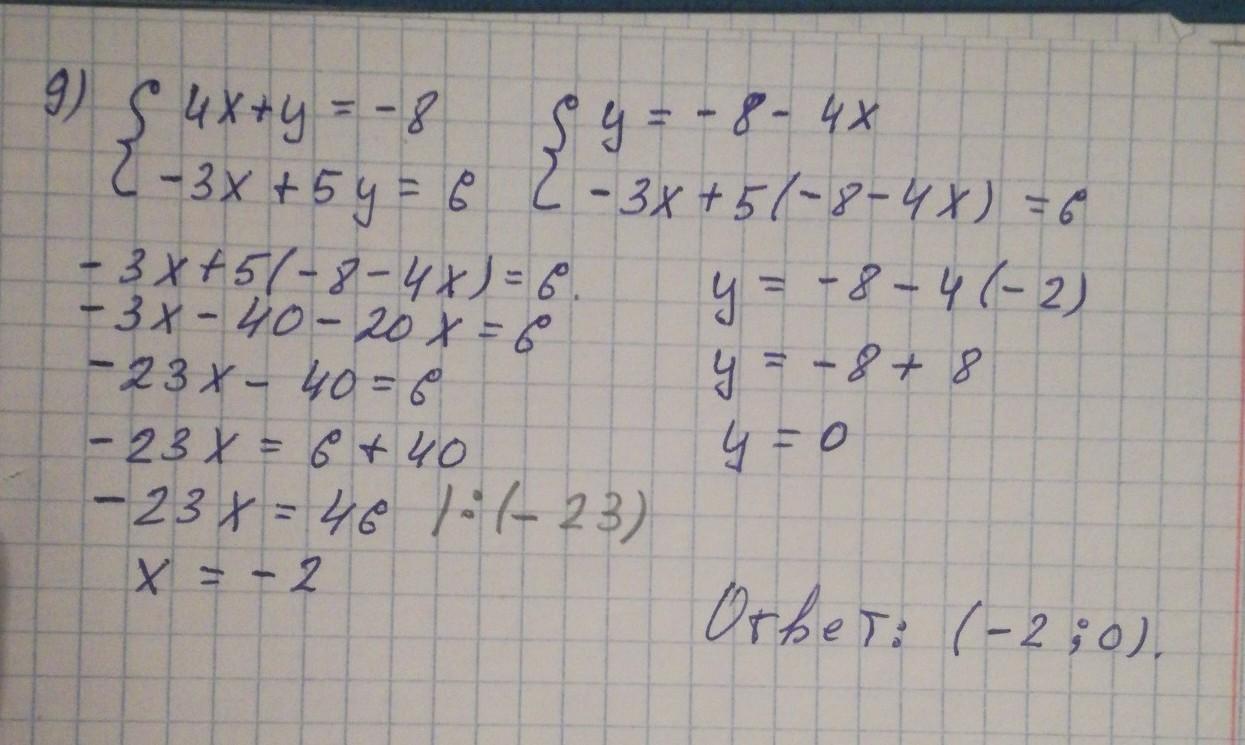 g) { 4x+y = -8   { y = -8 - 4x
-3x + 5y = 6   -3x + 5(-8-4x) = 6
-3x+5(-8-4x)=6.
-3x-40-20x=6
-23x-40=6
-23x = 6+40
-23x = 46 |:(-23)
x = -2
y = -8-4(-2)
y = -8+8
y = 0
Ответ: (-2;0).